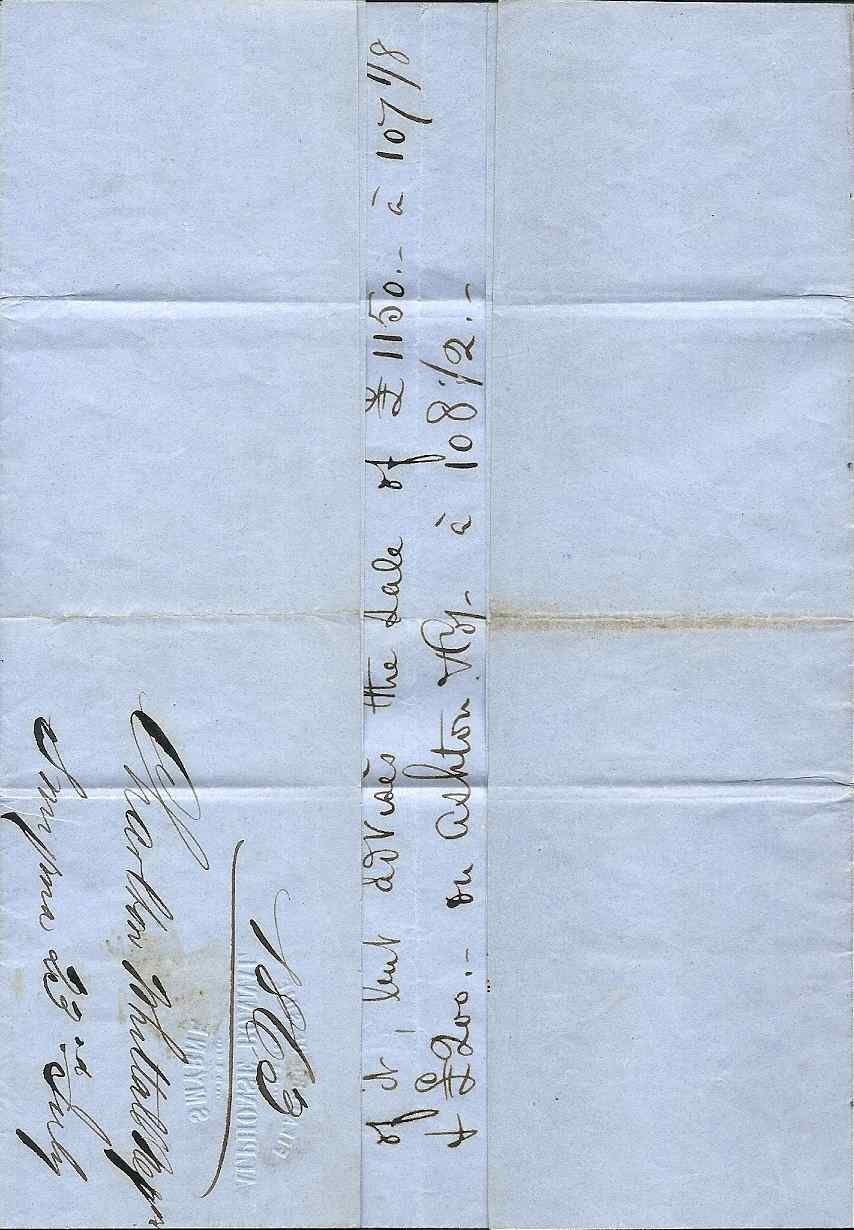 of it, but advises the sale of £1150.- à 107 1/8
& £200.- on Ashton &Co- à 108 1/2.-
1863
Charlton Whittall
Smyrna 23rd July
SMYRNE